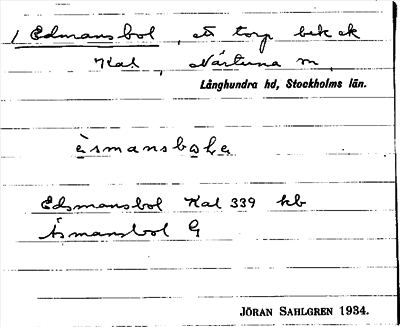 / Edmansbol, ett torp bek ek
Kal, Närtuna sn,
Långhundra hd, Stockholms län.
èsmansbola
Edsmansbol Kal 339 hb
Åsmansbol G
JÖRAN SAHLGREN 1934.